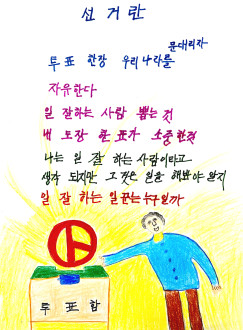 선거란
문대리자
투표 한장 우리나라를
자유한다
일 잘하는 사람 뽑는 것
내 도장 한 표가 소중한것
나는 일 잘 하는 사람이라고
생각 되지만 그것은 일을 해봐야 알지
일 잘 하는 일꾼는 누구일까
투표함